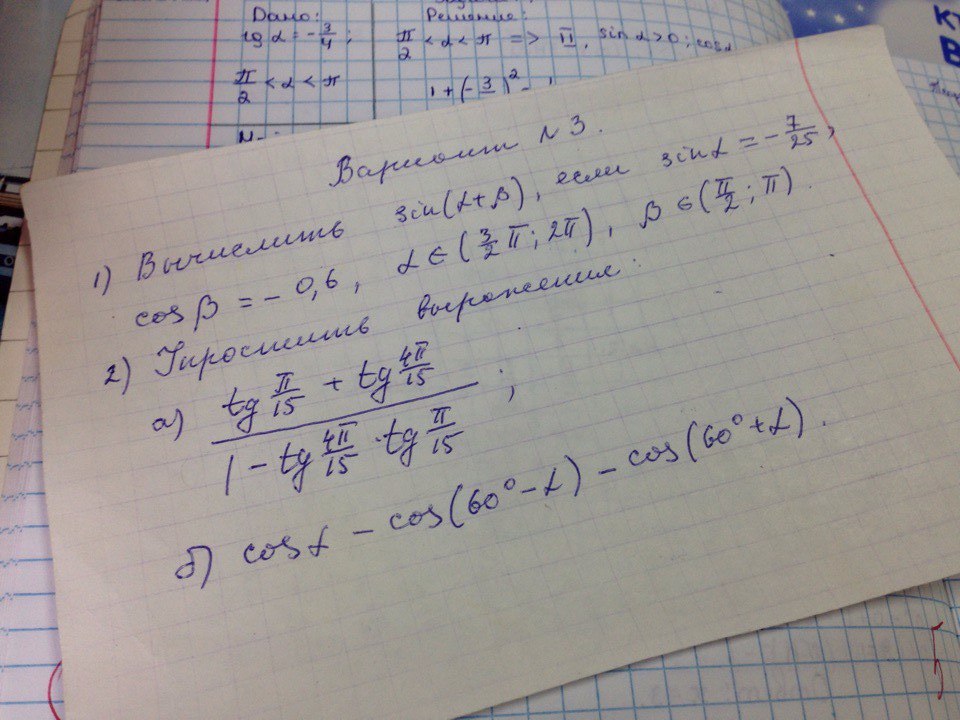 Дано:
tg α = -3/4 ;
π/2 < α < π
Решение:
π/2 < α < π => II, sin α > 0; cos α
1 + (-3/)² =
К
В
Вариант N 3.
1) Вычислить sin(α+β), если sin α = -7/25,
cos β = -0,6, α ∈ (3/2 π; 2π), β ∈ (π/2; π).
2) Упростить выражения:
а) (tg π/15 + tg 4π/15) / (1 - tg 4π/15 · tg π/15) ;
б) cos α - cos(60° - α) - cos(60° + α).